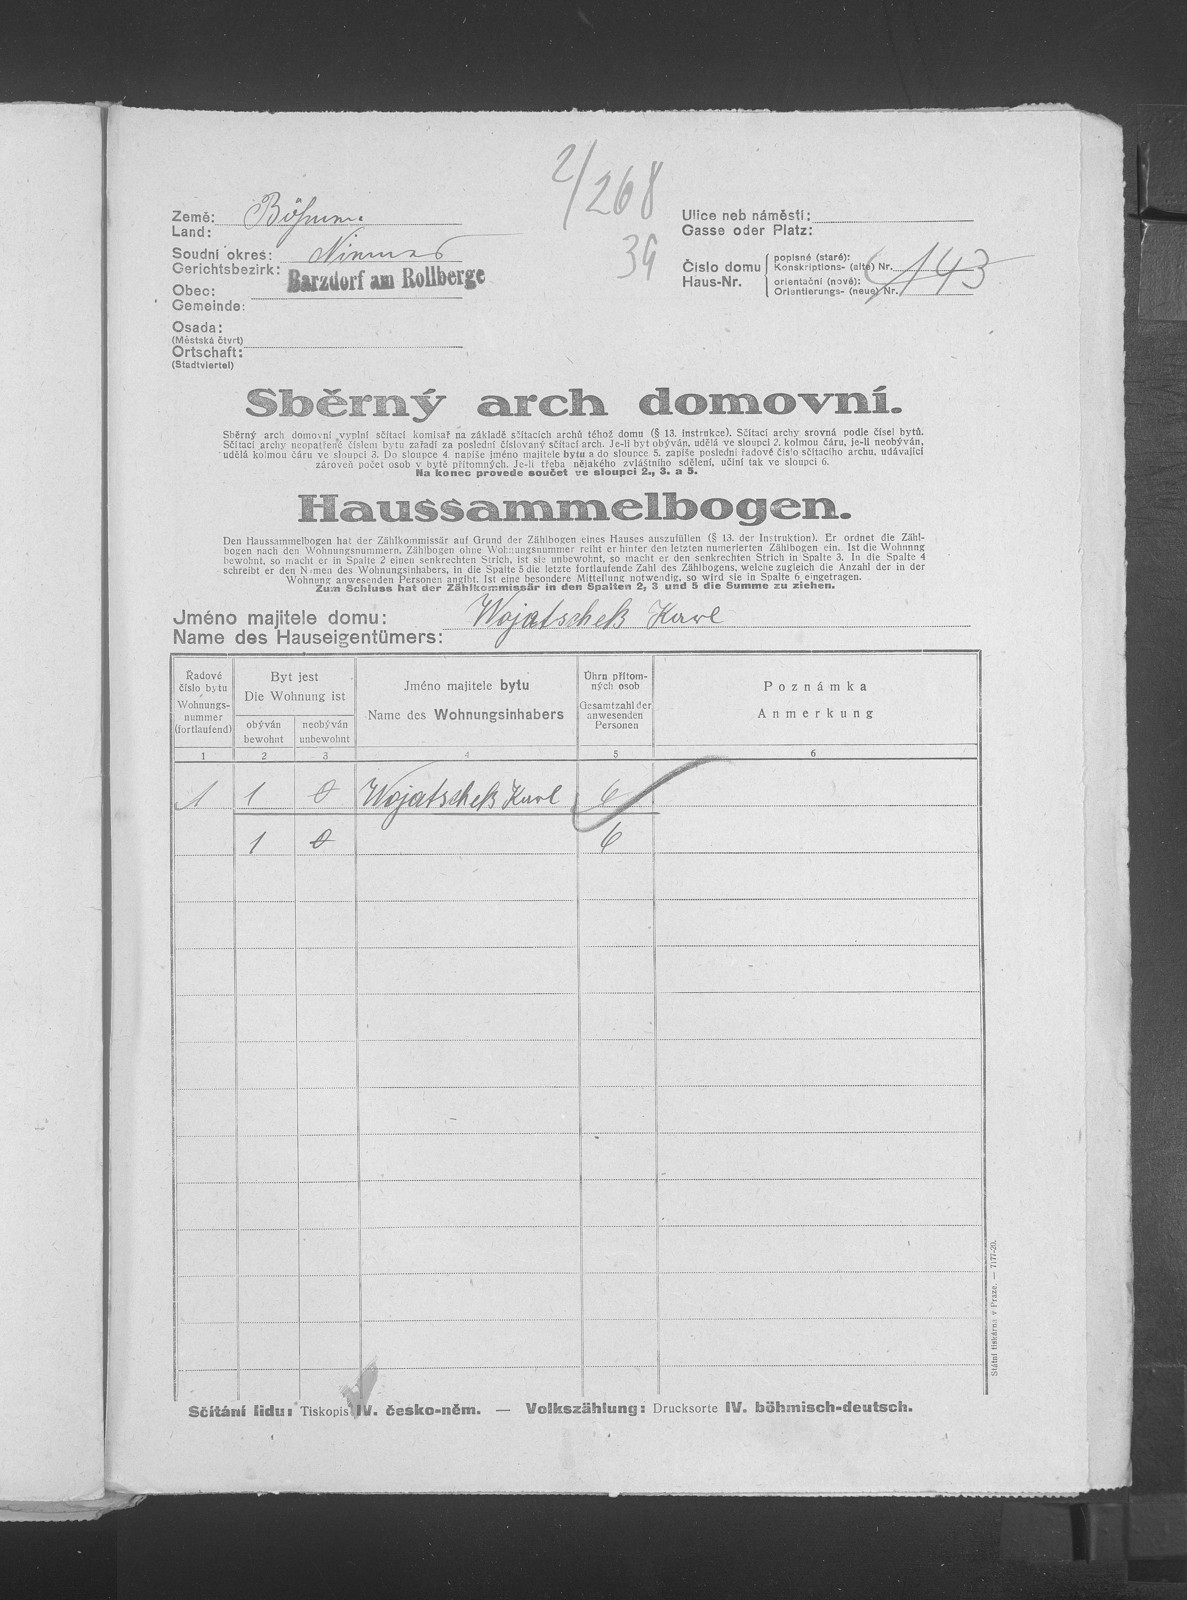 2/268
39
Země: Böhmen
Land:
Soudní okres: Niemes
Gerichtsbezirk:
Barzdorf am Rollberge
Obec:
Gemeinde:
Osada:
(Městská čtvrt)
Ortschaft:
(Stadtviertel)
Ulice neb náměstí:
Gasse oder Platz:
Číslo domu
Haus-Nr.
popisné (staré):
Konskriptions- (alte) Nr.
orientační (nové):
Orientierungs- (neue) Nr.
143
Sběrný arch domovní.
Sběrný arch domovní vyplní sčítací komisař na základě sčítacích archů téhož domu (§ 13. instrukce). Sčítací archy srovná podle čísel bytů.
Sčítací archy neopatřené číslem bytu zařadí za poslední číslovaný sčítací arch. Je-li byt obýván, udělá ve sloupci 2. kolmou čáru, je-li neobýván,
udělá kolmou čáru ve sloupci 3. Do sloupce 4. napíše jméno majitele bytu a do sloupce 5. zapíše poslední řadové číslo sčítacího archu, udávající
zároveň počet osob v bytě přítomných. Je-li třeba nějakého zvláštního sdělení, učiní tak ve sloupci 6.
Na konec provede součet ve sloupci 2., 3. a 5.
Haussammelbogen.
Den Haussammelbogen hat der Zählkommissär auf Grund der Zählbogen eines Hauses auszufüllen (§ 13. der Instruktion). Er ordnet die Zähl-
bogen nach den Wohnungsnummern. Zählbogen ohne Wohnungsnummer reiht er hinter den letzten numerierten Zählbogen ein. Ist die Wohnnng
bewohnt, so macht er in Spalte 2 einen senkrechten Strich, ist sie unbewohnt, so macht er den senkrechten Strich in Spalte 3. In die Spalte 4
schreibt er den Namen des Wohnungsinhabers, in die Spalte 5 die letzte fortlaufende Zahl des Zählbogens, welche zugleich die Anzahl der in der
Wohnung anwesenden Personen angibt. Ist eine besondere Mitteilung notwendig, so wird sie in Spalte 6 eingetragen.
Zum Schluss hat der Zählkommissär in den Spalten 2, 3 und 5 die Summe zu ziehen.
Jméno majitele domu: Wojatschek Karl
Name des Hauseigentümers:
Řadové
číslo bytu
Wohnungs-
nummer
(fortlaufend)
Byt jest
Die Wohnung ist
obýván
bewohnt
neobýván
unbewohnt
Jméno majitele bytu
Name des Wohnungsinhabers
Úhrn přítom-
ných osob
Gesamtzahl der
anwesenden
Personen
Poznámka
Anmerkung
1 2 3 4 5 6
1 1 0 Wojatschek Karl 6
1 0 6
Státní tiskárna v Praze. — 7177-20.
Sčítání lidu: Tiskopis IV. česko-něm. — Volkszählung: Drucksorte IV. böhmisch-deutsch.